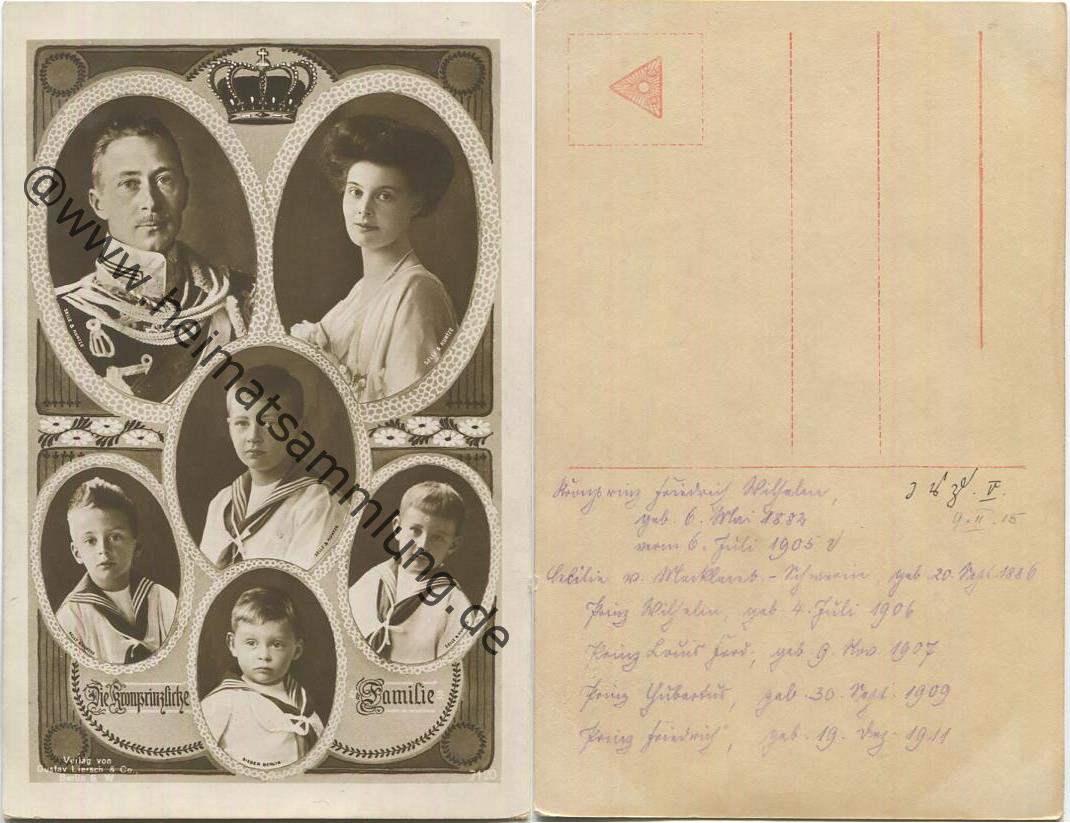 SELLE & KUNTZE
SELLE & KUNTZE
SELLE & KUNTZE
SELLE & KUNTZE
SELLE & KUNTZE
BIEBER BERLIN
Die Kronprinzliche Familie
Verlag von
Gustav Liersch & Co.,
Berlin S. W.
7120
@www.heimatsammlung.de
Kronprinz Friedrich Wilhelm,
geb. 6. Mai 1882
verm 6. Juli 1905
V.
9. II. 15
Cecilie v. Mecklenb - Schwerin, geb 20. Sept. 1886
Prinz Wilhelm, geb 4. Juli 1906
Prinz Louis Ferd., geb 9. Nov. 1907
Prinz Hubertus, geb. 30. Sept. 1909
Prinz Friedrich, geb. 19. Dez. 1911